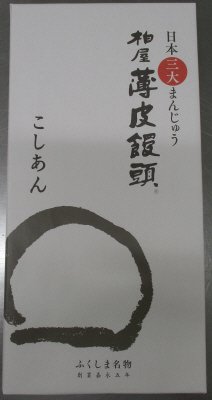 日本三大まんじゅう
柏屋薄皮饅頭
こしあん
ふくしま名物
創業嘉永五年